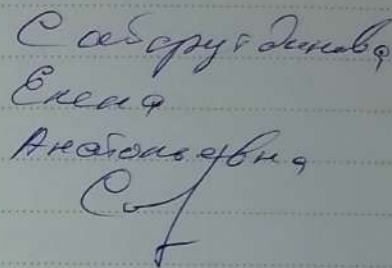 Сабфрутдинова
Елена
Анатольевна